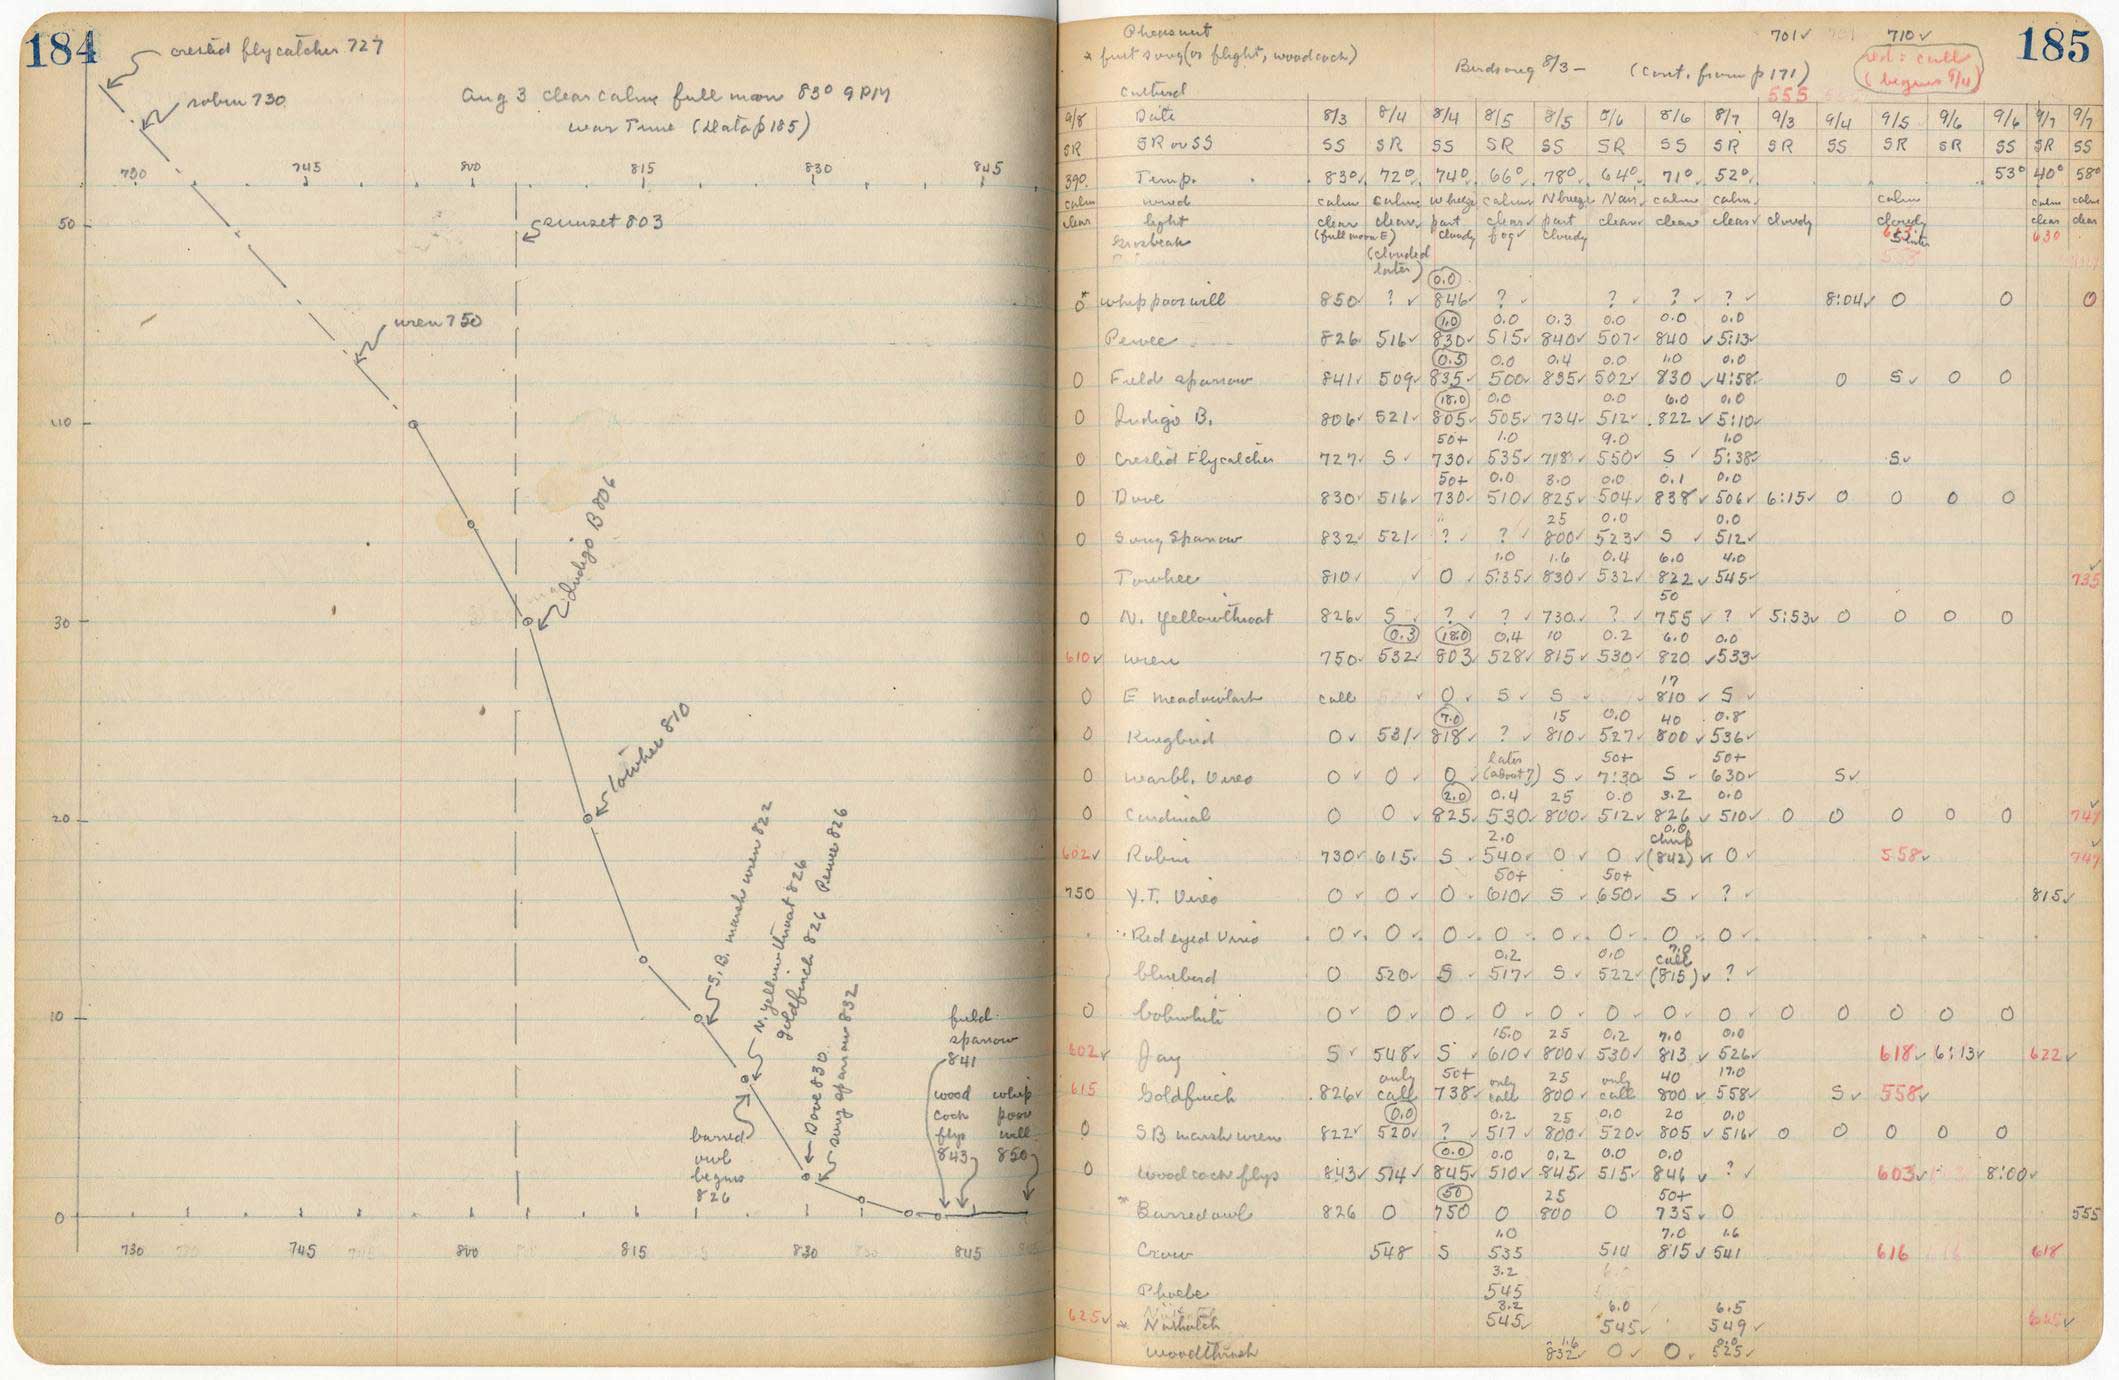 184
crested flycatcher 727
robin 730
Aug 3 clear calm full moon 830 9 PM
war Time (Data p 185)
730 745 800 815 830 845
50
sunset 803
wren 750
110
Indigo B 806
30
Towhee 810
20
S. B. marsh wren 822
N. Yellowthroat 826
goldfinch 826 Pewee 826
Dove 830
song sparrow 832
10
field
sparrow
841
wood whip
cock poor
flys will
843 850
barred
owl
begins
826
0
730 745 800 815 830 845
Pheasant 701✓ 710✓ 185
* first song (or flight, woodcock)
Birdsong 8/3 - (Cont. from p 171)
red = call
(begins 9/4)
555
9/8 Date 8/3 8/4 8/4 8/5 8/5 8/6 8/6 8/7 9/3 9/4 9/5 9/6 9/6 9/7 9/7
SR SR or SS SS SR SS SR SS SR SS SR SR SS SR SR SS SR SS
390 Temp. 830 720 740 660 780 640 710 520 530 400 580
calm wind calm calm W breeze calm N breeze N air calm calm calm calm calm
clear light clear clear part clear part clear clear clear cloudy cloudy clear clear
Grosbeak (full moon E) cloudy fog cloudy 630
(clouded
later) 0.0
0 * whippoorwill 850 ? ✓ 846 ? ✓ ? ✓ ? ✓ ? ✓ 8:04✓ 0 0 0
1.0 0.0 0.3 0.0 0.0 0.0
Pewee 826 516✓ 830 515✓ 840✓ 507✓ 840 ✓ 5:13✓
0.5 0.0 0.4 0.0 1.0 0.0
0 Field sparrow 841✓ 509✓ 835✓ 500✓ 835✓ 502✓ 830 ✓ 4:58✓ 0 S✓ 0 0
18.0 0.0 0.0 6.0 0.0
0 Indigo B. 806✓ 521✓ 805✓ 505✓ 734✓ 512✓ 822 ✓ 5:10✓
50+ 1.0 9.0 1.0
0 Crested Flycatcher 727✓ S ✓ 730✓ 535✓ 718✓ 550✓ S ✓ 5:38✓ S✓
50+ 0.0 3.0 0.0 0.1 0.0
0 Dove 830✓ 516✓ 730✓ 510✓ 825✓ 504✓ 838✓ 506✓ 6:15✓ 0 0 0 0
25 0.0 0.0
0 Song Sparrow 832✓ 521✓ ? ✓ ? ✓ 800✓ 523✓ S ✓ 512✓
1.0 1.6 0.4 6.0 4.0
Towhee 810✓ ✓ 0 ✓ 5:35✓ 830✓ 532✓ 822 ✓ 545✓ 735
50
0 N. Yellowthroat 826✓ S ✓ ? ✓ ? ✓ 730✓ ? ✓ 755 ✓ ? ✓ 5:53✓ 0 0 0 0
0.3 18.0 0.4 10 0.2 6.0 0.0
610✓ wren 750✓ 532✓ 803✓ 528✓ 815✓ 530✓ 820 ✓533✓
17
0 E meadowlark call ✓ 0 ✓ S ✓ S ✓ 810 ✓ S ✓
7.0 15 0.0 40 0.8
0 Kingbird 0✓ 531✓ 818✓ ? ✓ 810✓ 527✓ 800 ✓ 536✓
later 50+ 50+
0 warbl. Vireo 0 ✓ 0 ✓ 0 ✓ (about 7) S ✓ 7:30 S ✓ 630✓ S✓
2.0 0.4 25 0.0 3.2 0.0
0 Cardinal 0 0 ✓ 825✓ 530✓ 800✓ 512✓ 826 ✓ 510✓ 0 0 0 0 0 747
2.0 0.0 chirp
602✓ Robin 730✓ 615✓ S ✓ 540✓ 0 ✓ 0 ✓ (842) ✓ 0 ✓ 558✓ 747
50+ 50+
750 Y.T. Vireo 0 ✓ 0 ✓ 0 ✓ 610✓ S ✓ 650✓ S ✓ ? ✓ 815✓
Red eyed Vireo 0 ✓ 0 ✓ 0 ✓ 0 ✓ 0 ✓ 0 ✓ 0 ✓ 0 ✓
0.2 0.0 7.0 call
bluebird 0 520✓ S ✓ 517✓ S ✓ 522✓ (815) ✓ ? ✓
0 bobwhite 0 ✓ 0 ✓ 0 ✓ 0 ✓ 0 ✓ 0 ✓ 0 ✓ 0 ✓ 0 0 0 0 0
15.0 25 0.2 7.0 0.0
602✓ Jay S ✓ 548✓ S ✓ 610✓ 800✓ 530✓ 813 ✓ 526✓ 618✓ 6:13✓ 622✓
only 50+ only 25 only 40 17.0
615 Goldfinch 826✓ call 738✓ call 800✓ call 800 ✓ 558✓ S✓ 558✓
0.0 0.2 25 0.0 20 0.0
0 SB marsh wren 822✓ 520✓ ? ✓ 517✓ 800✓ 520✓ 805 ✓ 516✓ 0 0 0 0 0
0.0 0.0 0.2 0.0 0.0
0 woodcock flys 843✓ 514✓ 845✓ 510✓ 845✓ 515✓ 846 ✓ ? ✓ 603✓ 8:00✓
50 25 50+
* Barred owl 826 0 750 0 800 0 735✓ 0 555
1.0 7.0 1.6
Crow 548 S 535 510 815✓ 541 616 618
3.2
Phoebe 545
3.2 6.0 6.5
625✓ * Nuthatch 545✓ 545✓ 549✓ 645✓
1.6 0.0
woodthrush 832✓ 0 ✓ 0 ✓ 525✓